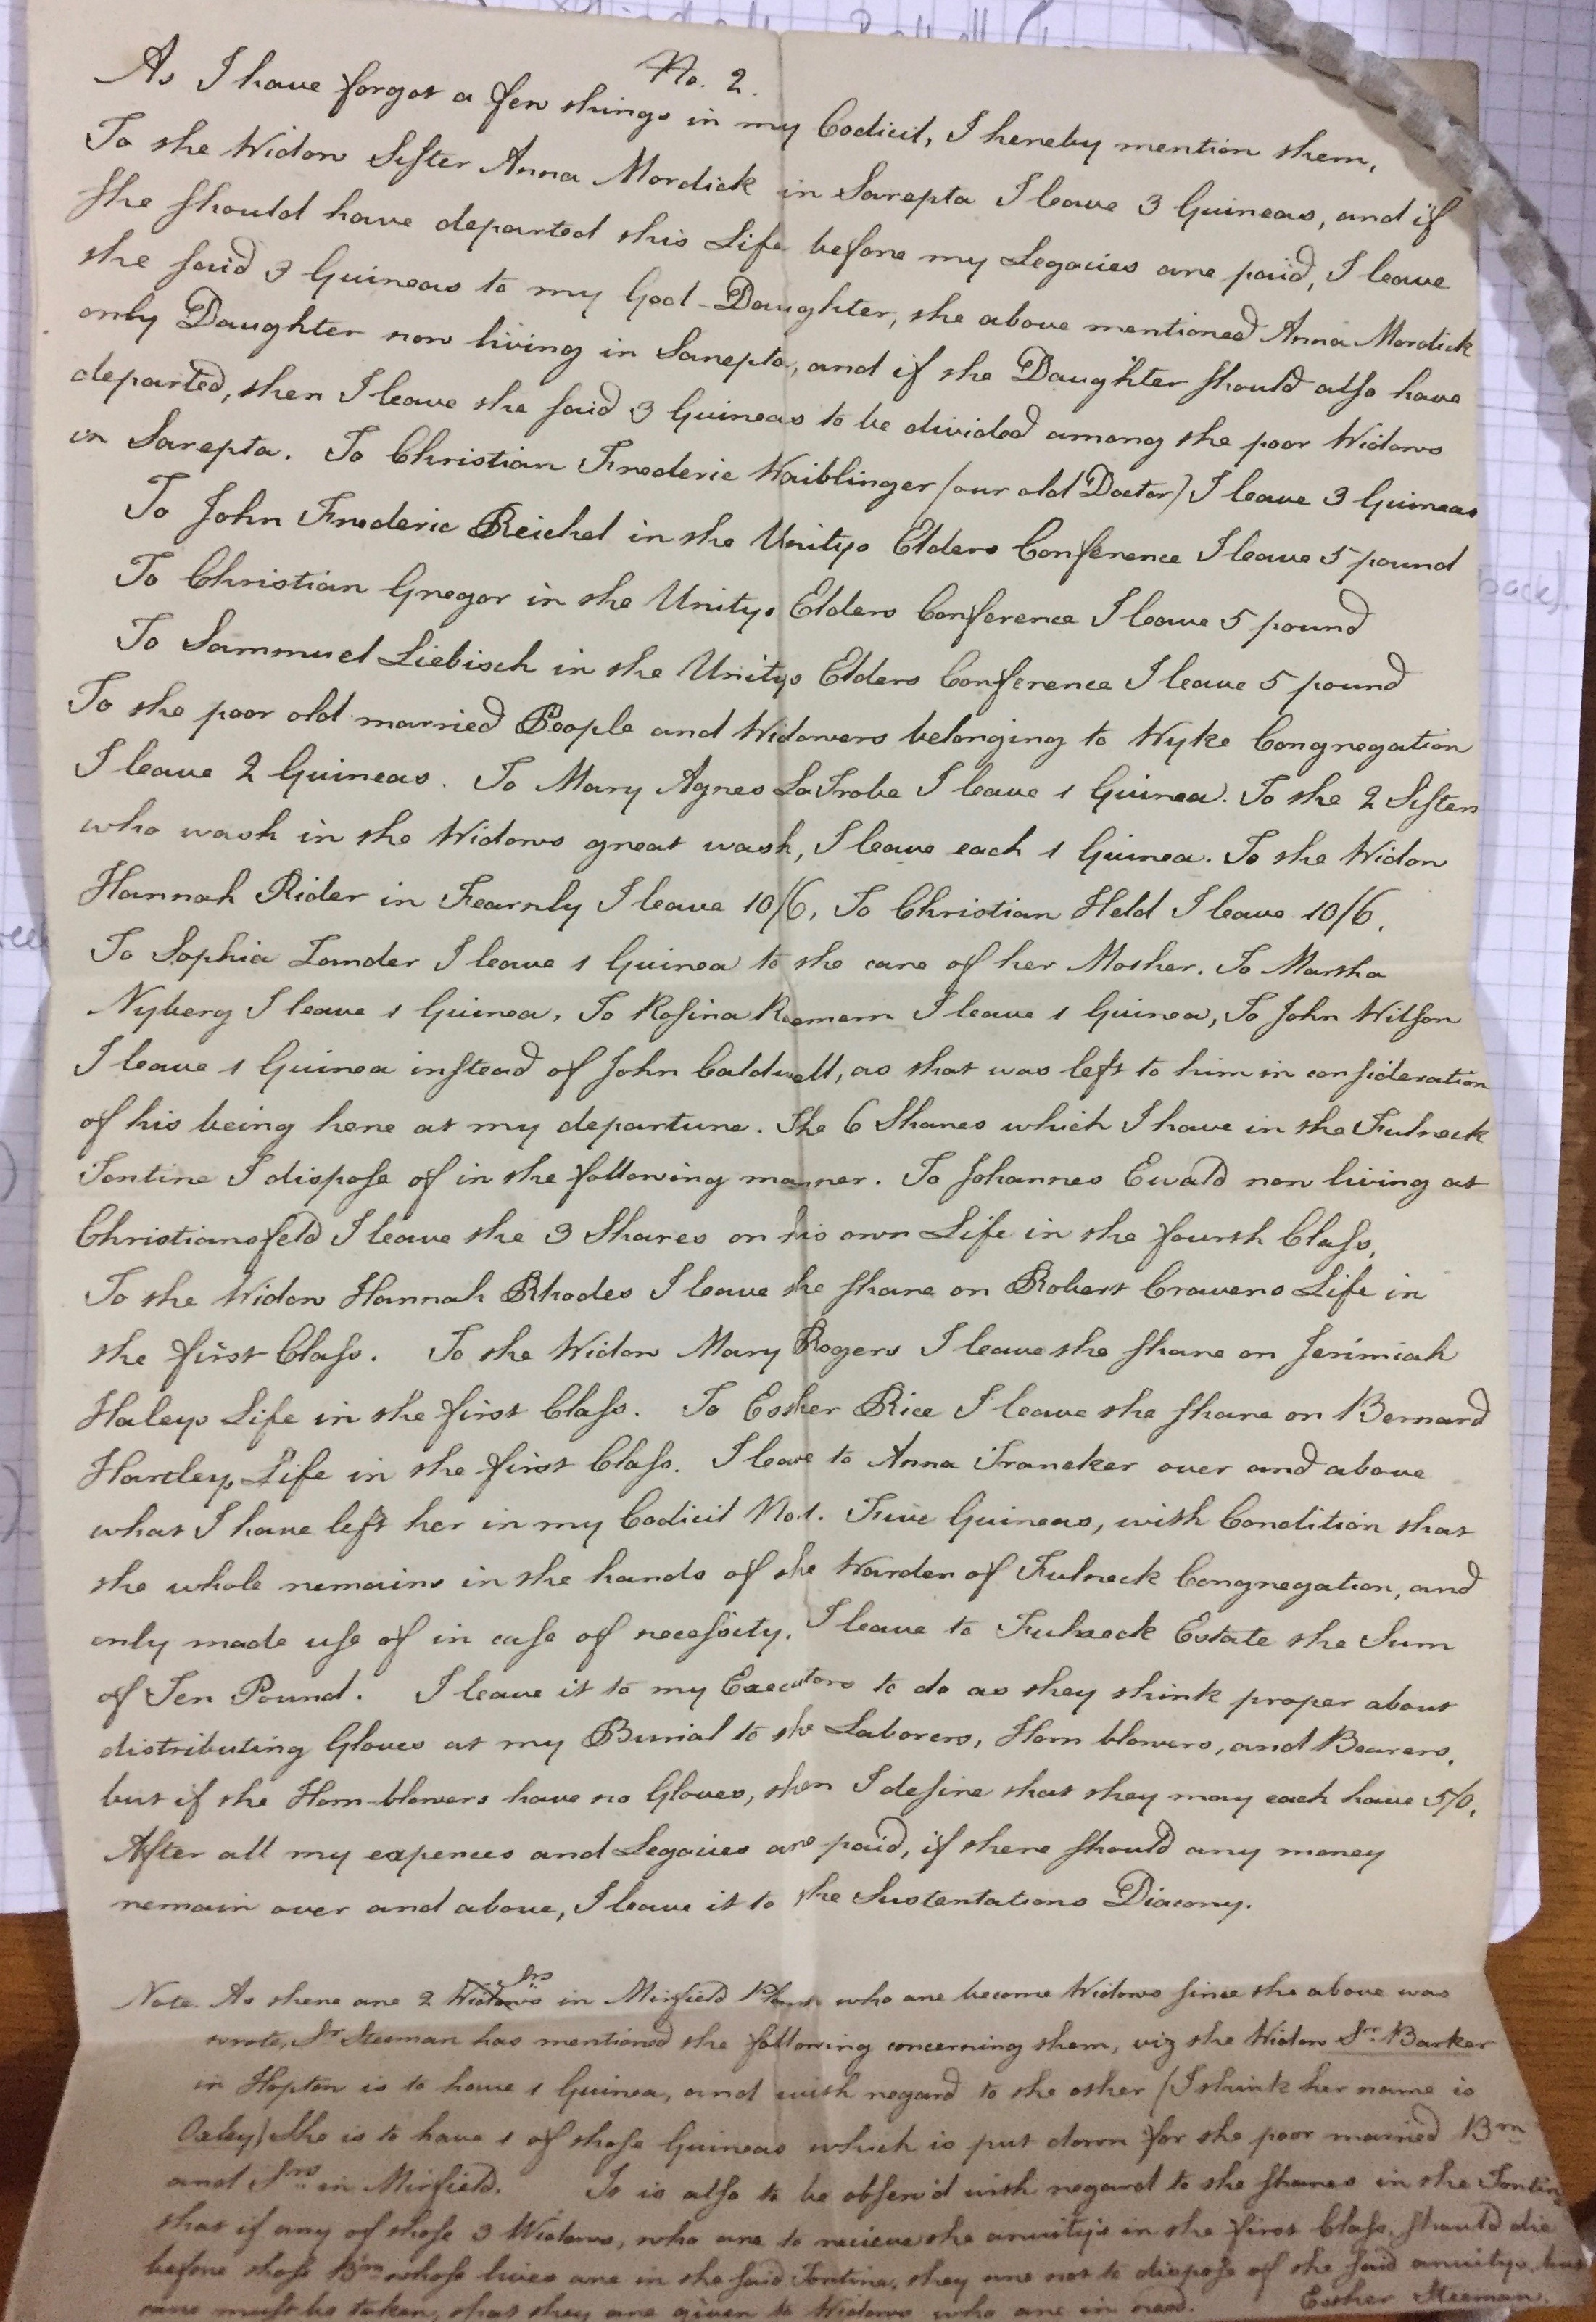 No. 2.
As I have forgot a few things in my Codicil, I hereby mention them,
To the Widow Sister Anna Mordick in Sarepta I leave 3 Guineas, and if
She should have departed this Life before my Legacies are paid, I leave
the said 3 Guineas to my God-Daughter, the above mentioned Anna Mordick
only Daughter now living in Sarepta, and if the Daughter should also have
departed, then I leave the said 3 Guineas to be divided among the poor Widows
in Sarepta. To Christian Frederic Waiblinger (our old Doctor) I leave 3 Guineas
To John Frederic Reichel in the Unitys Elders Conference I leave 5 pound
To Christian Gregor in the Unitys Elders Conference I leave 5 pound
To Sammuel Liebisch in the Unitys Elders Conference I leave 5 pound
To the poor old married People and Widowers belonging to Wyke Congregation
I leave 2 Guineas. To Mary Agnes LaTrobe I leave 1 Guinea. To the 2 Sisters
who wash in the Widows great wash, I leave each 1 Guinea. To the Widow
Hannah Rider in Fearnly I leave 10/6, To Christian Held I leave 10/6.
To Sophia I leave 1 Guinea to the care of her Mother. To Martha
Nyberg I leave 1 Guinea, To Rosina I leave 1 Guinea, To John Wilson
I leave 1 Guinea instead of John Caldwell, as that was left to him in consideration
of his being here at my departure. The 6 Shares which I have in the Fulneck
Tontine I dispose of in the following manner. To Johannes Ewald now living at
Christiansfeld I leave the 3 Shares on his own Life in the fourth Class,
To the Widow Hannah Rhodes I leave the share on Robert Cravens Life in
the first Class. To the Widow Mary Rogers I leave the share on Jerimiah
Haleys Life in the first Class. To Esther Rice I leave the share on Bernard
Hartleys Life in the first Class. I leave to Anna Traneker over and above
what I have left her in my Codicil No. 1. Five Guineas, with Condition that
the whole remains in the hands of the Warden of Fulneck Congregation, and
only made use of in case of necessity. I leave to Fulneck Estate the Sum
of Ten Pound. I leave it to my Executors to do as they think proper about
distributing Gloves at my Burial to the Laborers, Horn blowers, and Bearers,
but if the Horn-blowers have no Gloves, then I desire that they may each have 5/0.
After all my expences and Legacies are paid, if there should any money
remain over and above, I leave it to the Sustentations Diacony.
Note. As there are 2 Widows Srs in Mirfield who are become Widows since the above was
wrote, Sr Steeman has mentioned the following concerning them, viz the Widow Sr. Barker
in Hopton is to have 1 Guinea, and with regard to the other (I think her name is
Oxley) She is to have 1 of those Guineas which is put down for the poor married Brn
and Srs in Mirfield. It is also to be obser'd with regard to the shares in the Tontine
that if any of those 3 Widows, who are to recieve the anuitys in the first Class, should die
before those Brn whose lives are in the said Tontine, they are not to dispose of the said anuitys, but
care must be taken, that they are given to Widows who are in need. Esther Steeman.